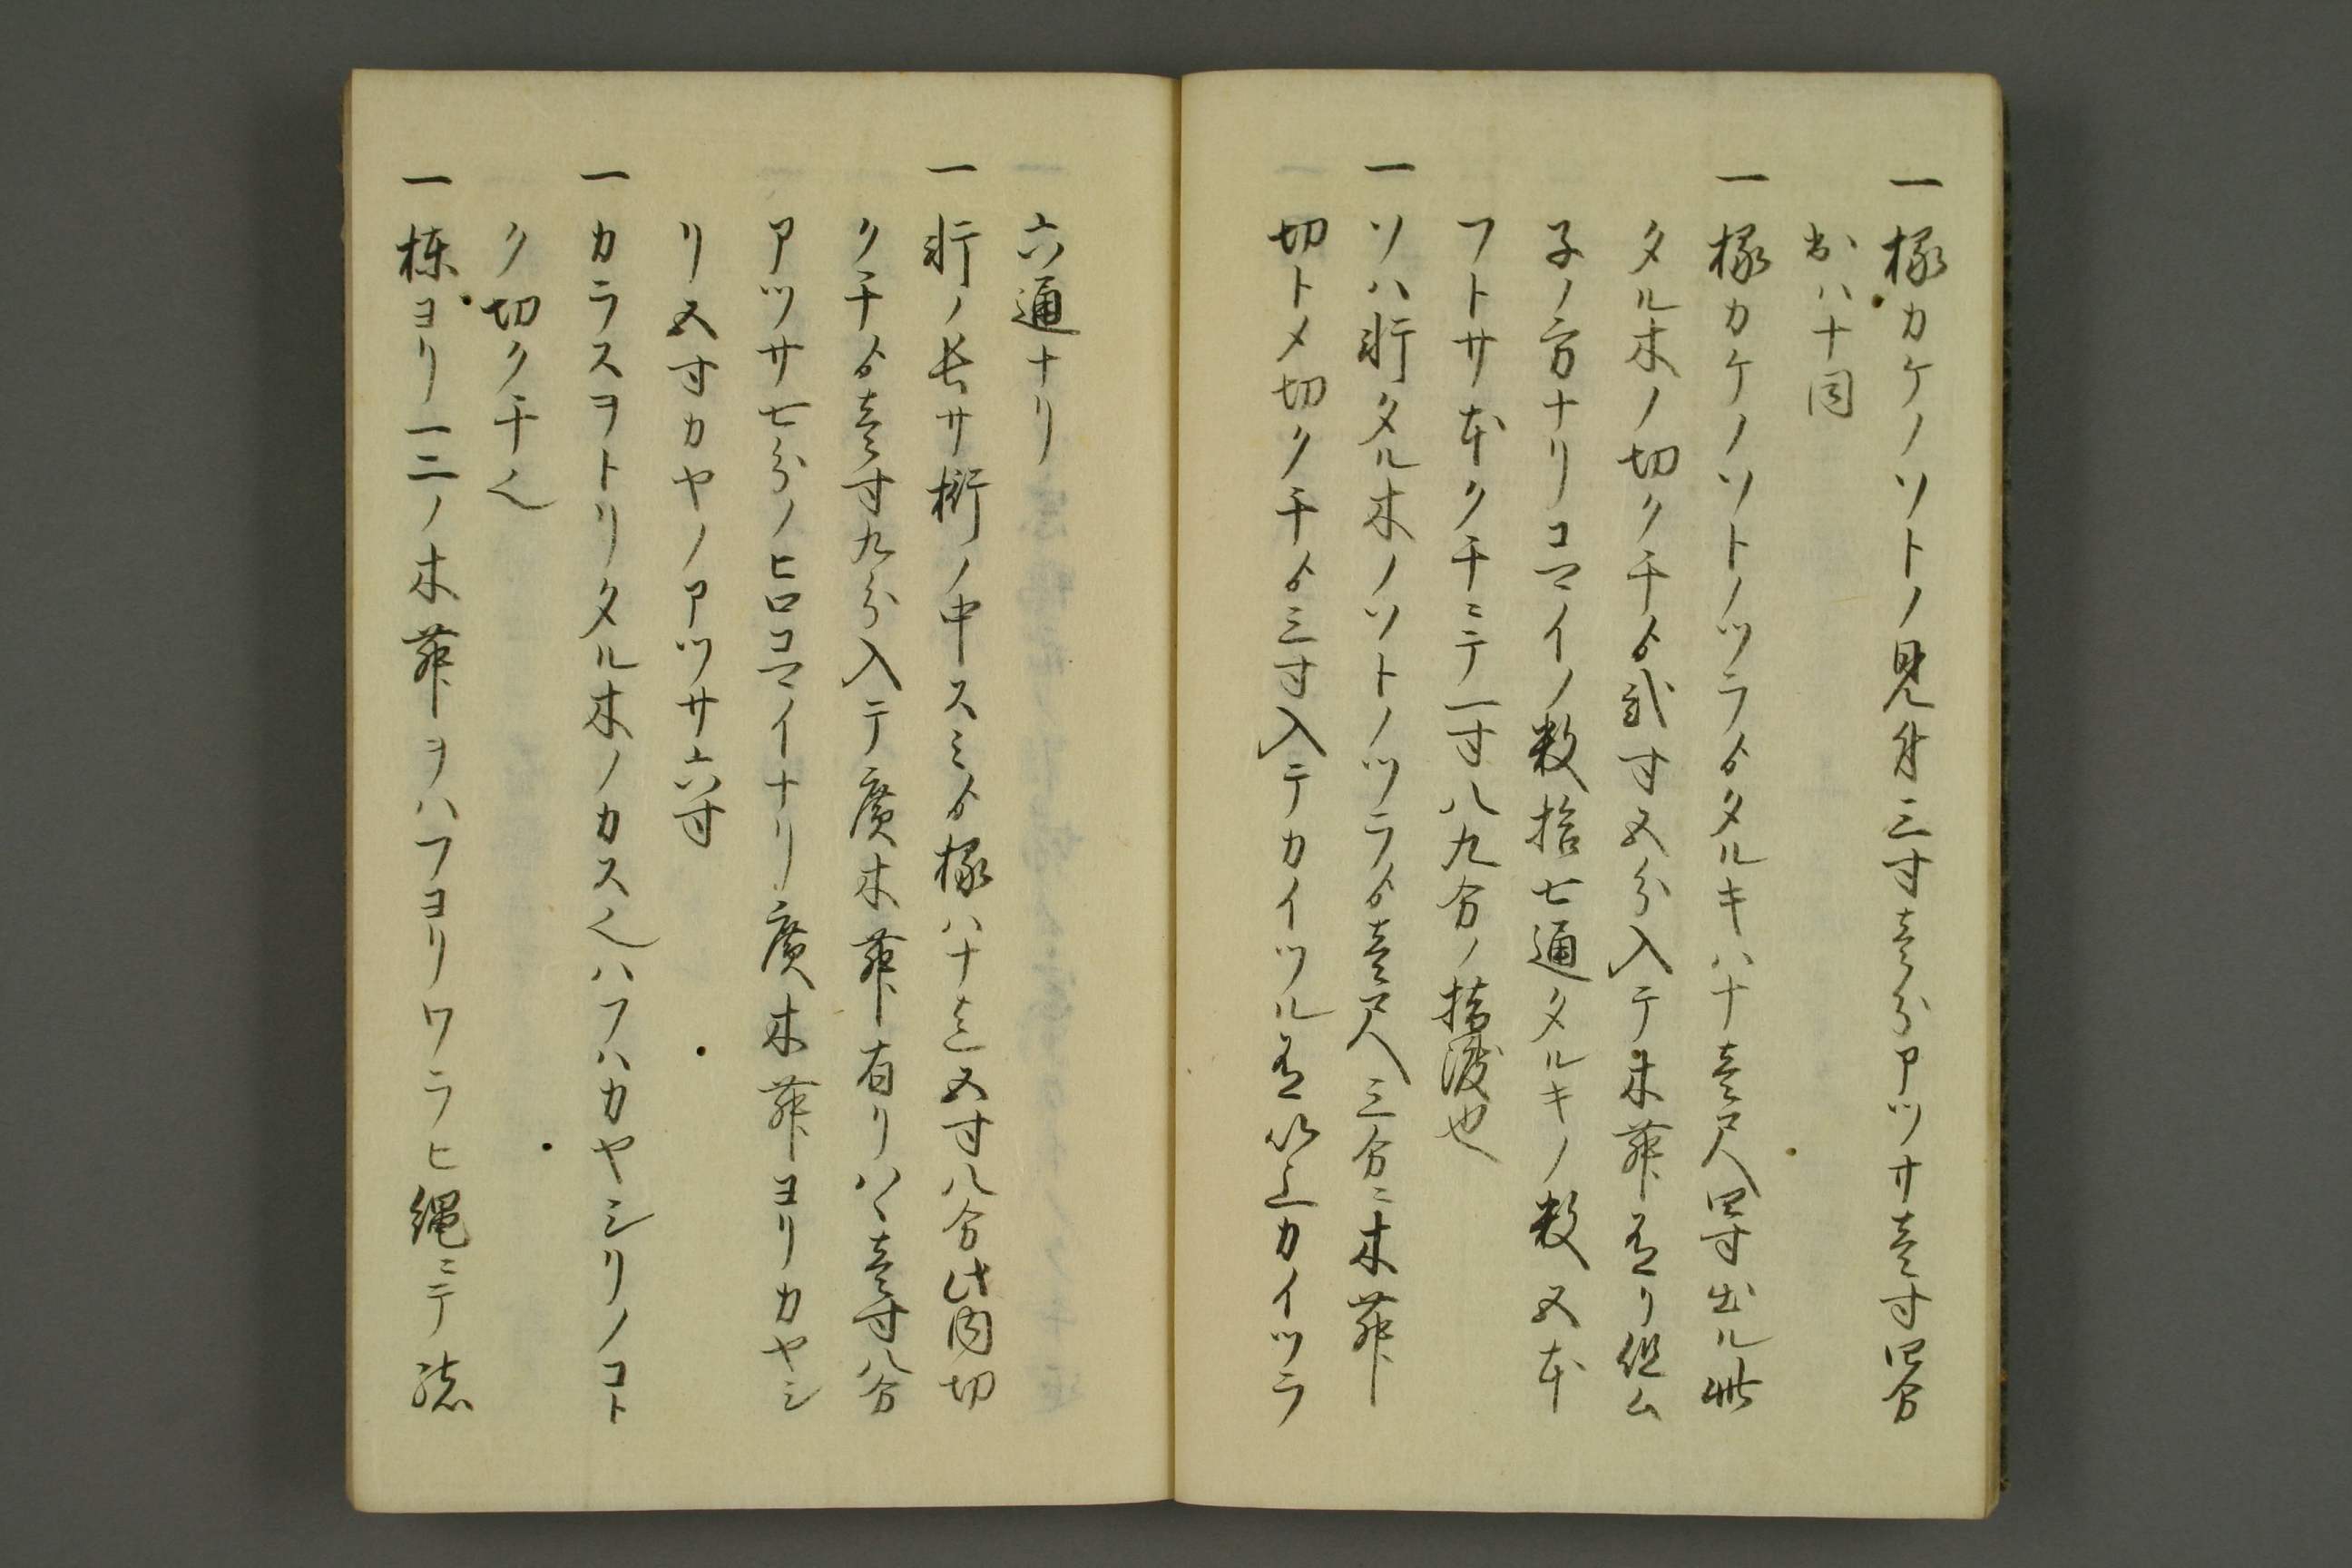 一椽カケノソトノ見付三寸壹分アツサ壹寸四分
出ハナ同
一椽カケノソトノツラゟタルキハナ壹尺四寸出ル此
タル木ノ切クチゟ貳寸五分入テ木舞有リ但ム
子ノ方ナリコマイノ数拾七通タルキノ数五本
フトサ本クチニテ一寸八九分ノ
也
一ソハ軒タル木ノソトノツラゟ壹尺三分ニ木舞
切トメ切クチゟ三寸入テカイツル有以上カイツラ
六通ナリ
一軒ノ長サ桁ノ中スミゟ椽ハナ迠五寸八分此内切
クチゟ壹寸九分入テ廣木舞有リハヽ壹寸八分
アツサ七分ノヒロコマイナリ廣木舞ヨリカヤシ
リ五寸カヤノアツサ六寸
一カラスヲトリタル木ノカス〱ハフハカヤシリノコト
ク切クチ〱
一棟ヨリ一二ノ木舞ヲハフヨリワラヒ縄ニテ